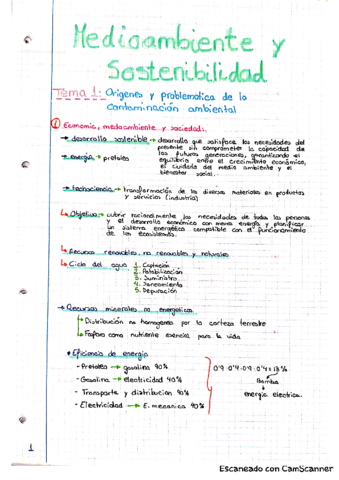 Medioambiente y
Sostenibilidad
Tema 1: Orígenes y problemática de la
contaminación ambiental
① Economía, medioambiente y sociedad:
→ desarrollo sostenible → desarrollo que satisface las necesidades del
presente sin comprometer la capacidad de
las futuras generaciones, garantizando el
equilibrio entre el crecimiento económico,
el cuidado del medio ambiente y el
bienestar social.
→ energía → petróleo
→ tecnociencia → transformación de los diversos materiales en productos
y servicios (industrial)
↳ Objetivo → cubrir racionalmente las necesidades de todas las personas
y el desarrollo económico con menos energía y planificar
un sistema energético compatible con el funcionamiento
de los ecosistemas.
↳ Recursos renovables, no renovables y naturales
↳ Ciclo del agua 1. Captación
2. Potabilización
3. Suministro
4. Saneamiento
5. Depuración
→ Recursos minerales no energéticos
↳ Distribución no homogenea por la corteza terrestre
↳ Fósforo como nutriente esencial para la vida
• Eficiencia de energía
- Petróleo → gasolina 90%
- Gasolina → electricidad 40%
- Transporte y distribución 90%
- Electricidad → E. mecanica 40%
0'9 · 0'4 · 0'9 · 0'4 = 13%
Bomba
energía electrica.
1
Escaneado con CamScanner